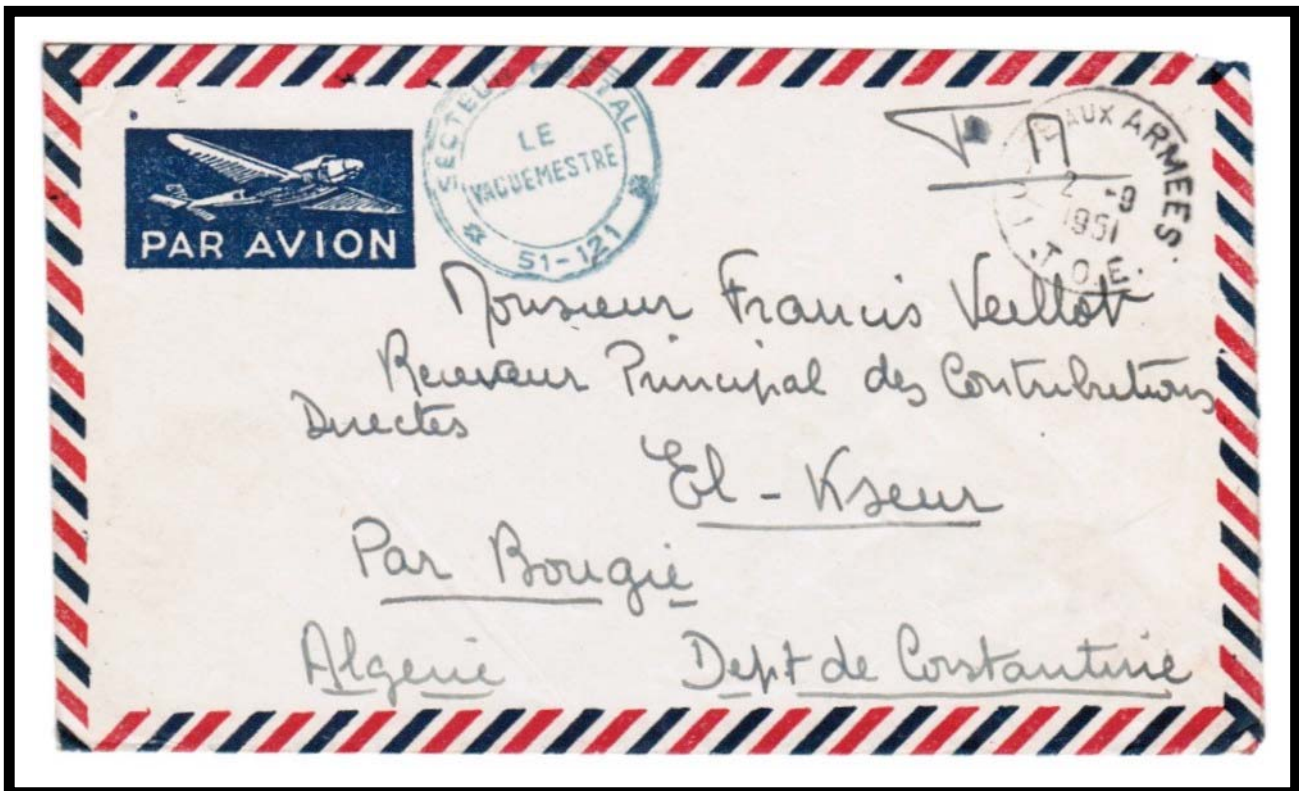 PAR AVION
SECTEUR POSTAL
LE
VAGUEMESTRE
51-121
F M
POSTE AUX ARMEES
2 -9
1951
T.O.E.
Monsieur Francis Veillot
Receveur Principal des Contributions
Directes
El-Kseur
Par Bougie
Algérie Dept de Constantine